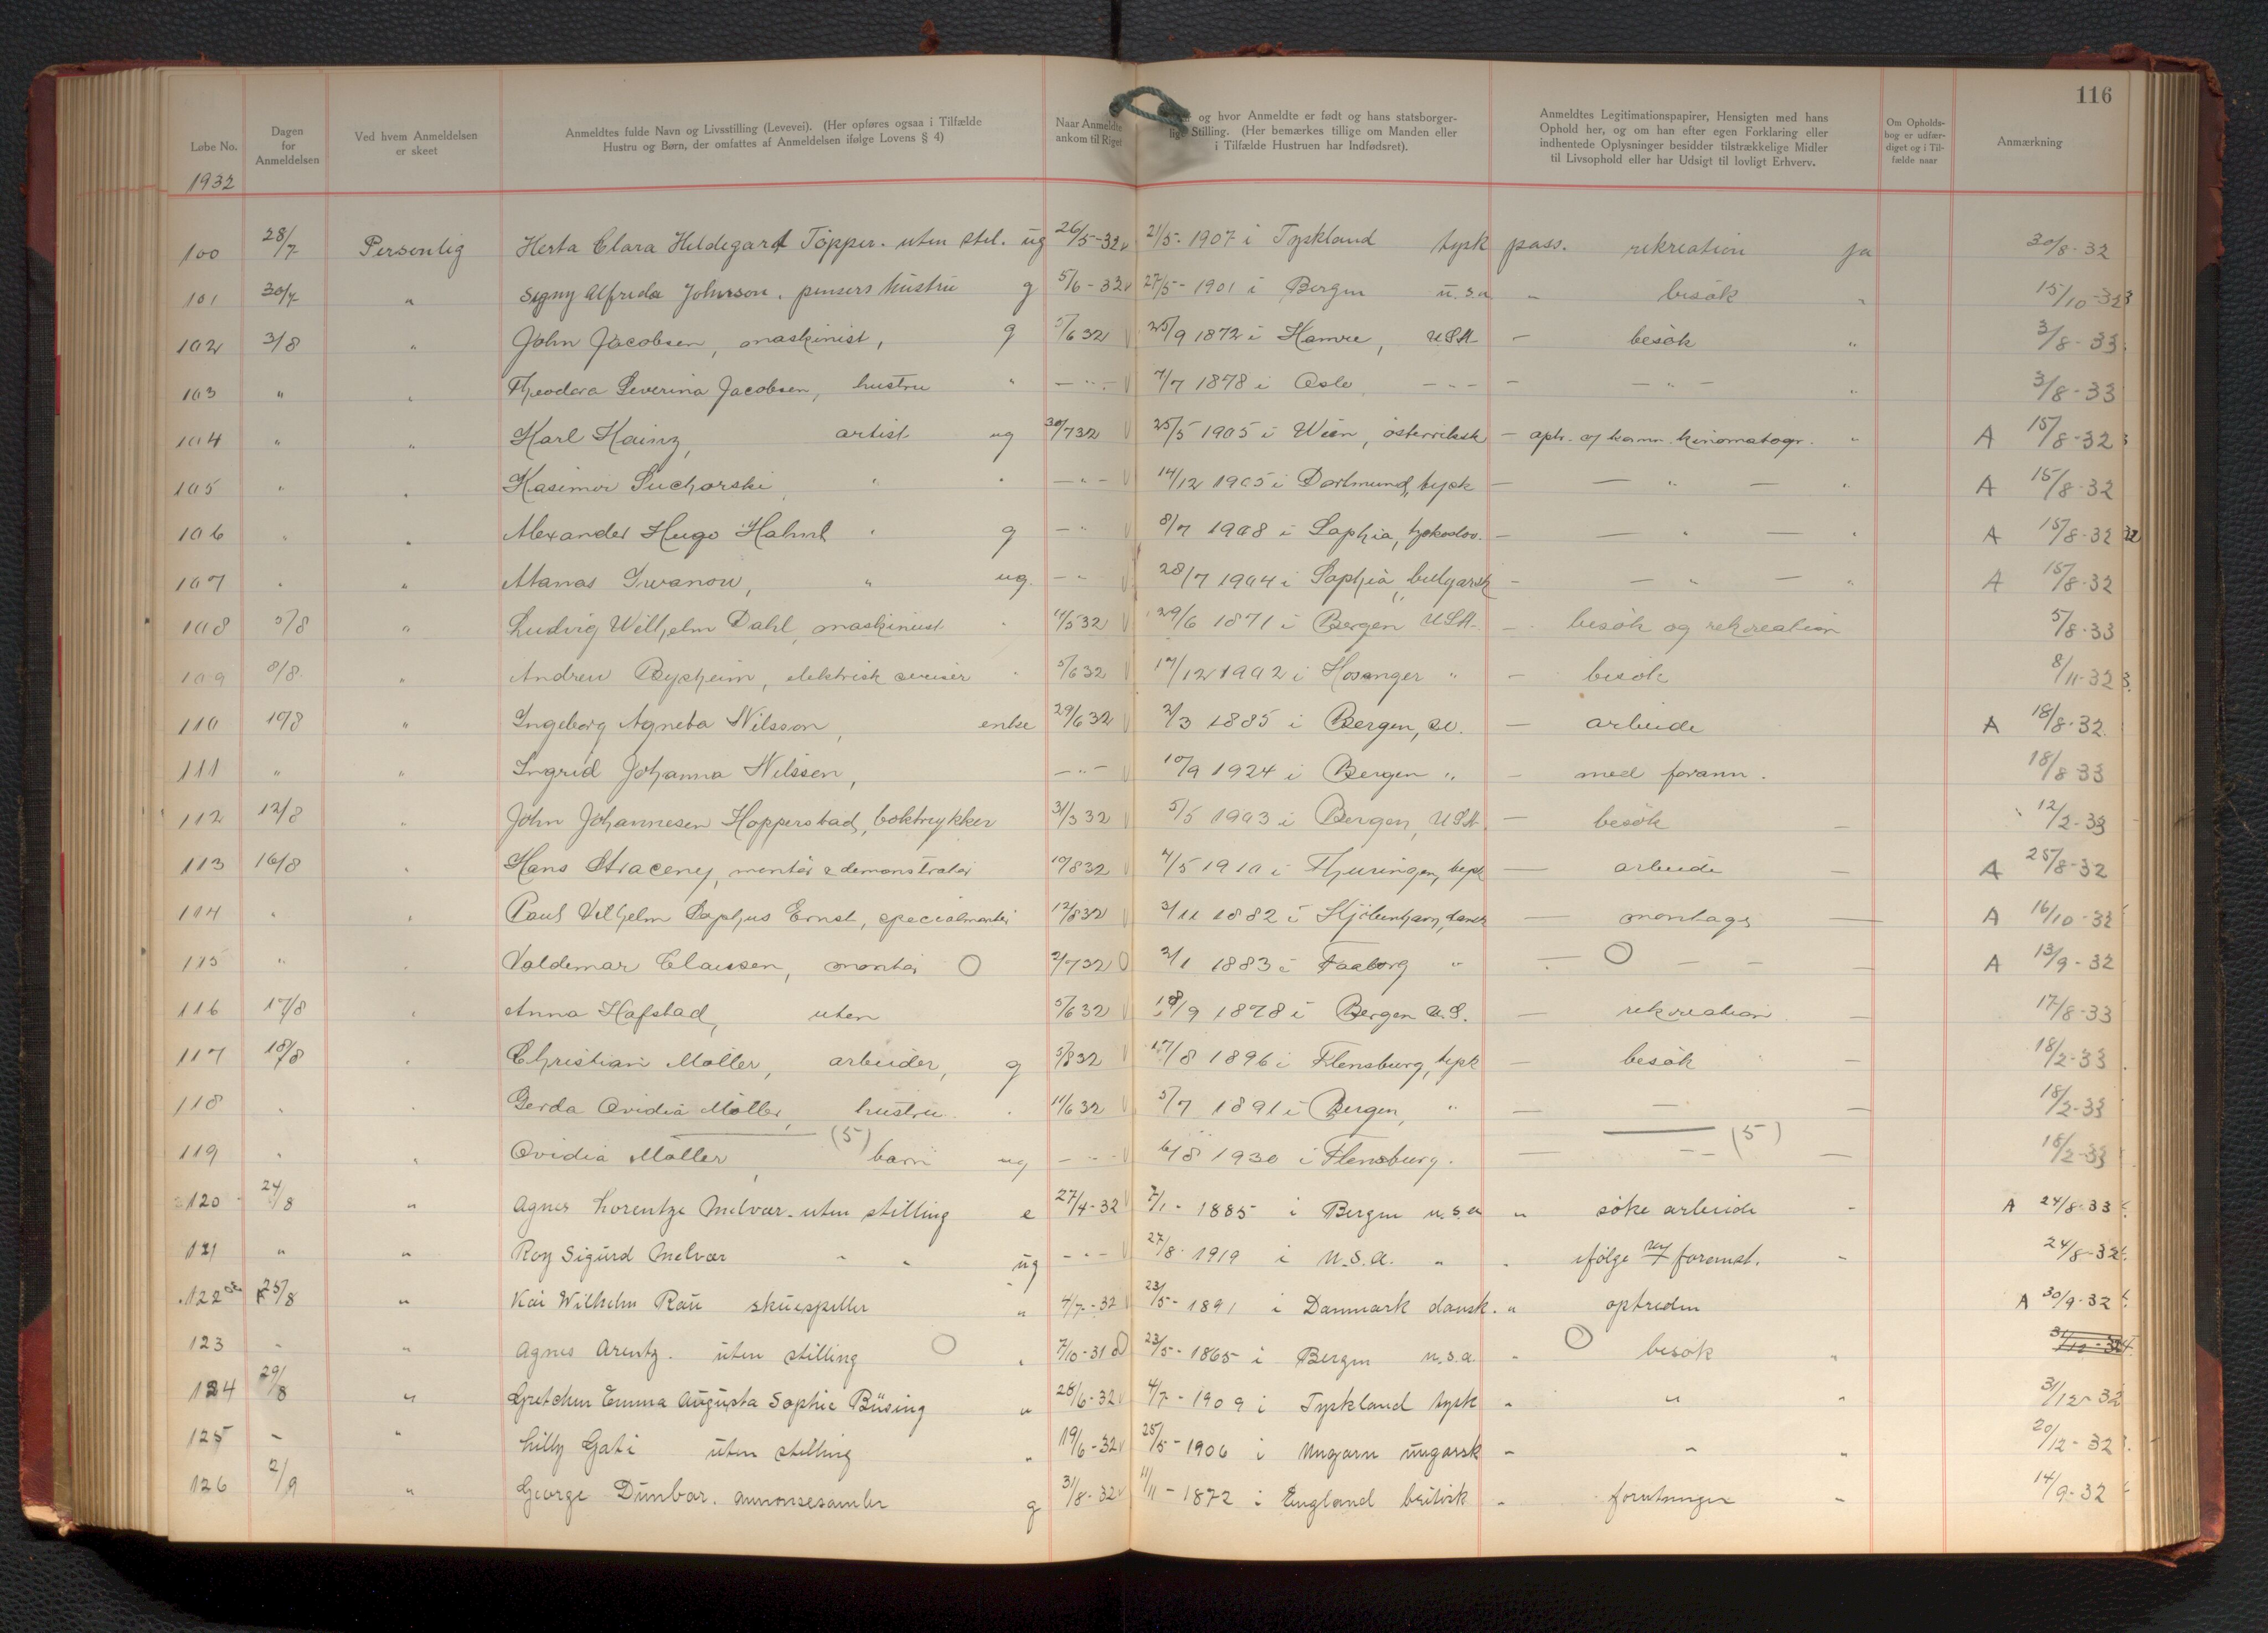 116
Løbe No.
1932
Dagen for Anmeldelsen
Ved hvem Anmeldelsen er skeet
Anmeldtes fulde Navn og Livsstilling (Levevei). (Her opføres ogsaa i Tilfælde Hustru og Børn, der omfattes af Anmeldelsen ifølge Lovens § 4)
Naar Anmeldte ankom til Riget
og hvor Anmeldte er født og hans statsborgerlige Stilling. (Her bemærkes tillige om Manden eller i Tilfælde Hustruen har Indfødsret).
Anmeldtes Legitimationspapirer, Hensigten med hans Ophold her, og om han efter egen Forklaring eller indhentede Oplysninger besidder tilstrækkelige Midler til Livsophold eller har Udsigt til lovligt Erhverv.
Om Opholdsbog er udfærdiget og i Tilfælde naar
Anmærkning
100 28/7 Personlig Herta Clara Hildegard Töpper. uten stil. ug 26/5-32 21/5-1907 i Tyskland tysk pass. rekreation ja 30/8-32
101 30/7 " Signy Alfrida Johnson. hustru g 5/6-32 27/5-1901 i Bergen u.s.a " besök " 15/10-32
102 3/8 " John Jacobsen, maskinist, g 5/6 32 25/9 1872 i Hamre, USA - besök " 3/8-33
103 " " Theodora Severina Jacobsen, hustru " - " - 7/7 1878 i Oslo - - - - - " - " 3/8-33
104 " " Karl Kainz, artist ug 30/7 32 25/5 1905 i Wien, österriksk - optr. og kinematogr. " A 15/8-32
105 " " Kasimir Sucharski " " - " - 14/12 1905 i Dortmund, tysk - - " - " A 15/8-32
106 " " Alexander Hugo " g - " 8/7 1908 i Saphia, - - " - " A 15/8-32
107 " " Atanas Iwanow, " ug. - " 28/7 1904 i Saphia, bulgarsk - - " - " A 15/8-32
108 5/8 " Ludvig Wilhelm Dahl, maskinist " 4/5 32 29/6 1871 i Bergen USA. - besök og rekreation 5/8-33
109 8/8 " Andrew Bysheim, elektrisk " 5/6 32 17/12 1902 i Hosanger " - besök 8/11-32
110 10/8 " Ingeborg Agneta Nilsson, enke 29/6 32 2/3 1885 i Bergen, sv. - arbeide A 18/8-32
111 " " Ingrid Johanna Nilssen, - " - 10/9 1924 i Bergen " - med forann. 18/8 33
112 12/8 " John Johannesen Hopperstad, boktrykker 31/3 32 5/5 1903 i Bergen, USA. - besök - 12/2-33
113 16/8 " Hans Straceny, montör & demonstratör 10/8 32 4/5 1910 i Thuringen, tysk - arbeide - A 25/8-32
114 " " Poul Vilhelm Sophus Ernst, specialmontör 12/8 32 3/11 1882 i Kjöbenhavn, dansk - montage - A 16/10-32
115 " " Valdemar Claussen, montör 2/7 32 2/1 1883 i Faaborg " - - - - A 13/9-32
116 17/8 " Anna Hafstad, uten 5/6 32 18/9 1878 i Bergen U.S. - rekreation - 17/8-33
117 18/8 " Christian Möller, arbeider, g 5/8 32 17/8 1896 i Flensburg, tysk - besök - 18/2-33
118 " " Gerda Ovidia Möller, hustru " 11/6 32 5/7 1891 i Bergen, " - - - 18/2-33
(5) (5)
119 " " Ovidia Möller, barn ug - - - 6/8 1930 i Flensburg. - - - - 18/2-33
120 24/8 " Agnes Lorentze Melvær. uten stilling e 27/4-32 7/1-1885 i Bergen u.s.a " söke arbeide - A 24/8-33
121 " " Roy Sigurd Melvær " " ug - " - 27/8-1919 i U.S.A. " " ifölge foranst. - 24/8-32
122 25/8 " Kai Wilhelm Rau skuespiller " 4/7-32 23/5-1891 i Danmark dansk. " optreden A 30/9-32
123 - " Agnes Arentz. uten stilling " 7/10-31 23/5-1865 i Bergen u.s.a. " besök "
124 29/8 " Gretchen Emma Augusta Sophie Büsing " 28/6-32 4/7-1909 i Tyskland tysk " " " 31/12-32
125 - " Lilly Gati uten stilling " 19/6-32 25/5-1906 i Ungarn ungarsk - " " 20/12-32
126 2/9 " George Dunbar. annonsesamler g 31/8-32 11/11-1872 i England britisk - forretninger - 14/9-32